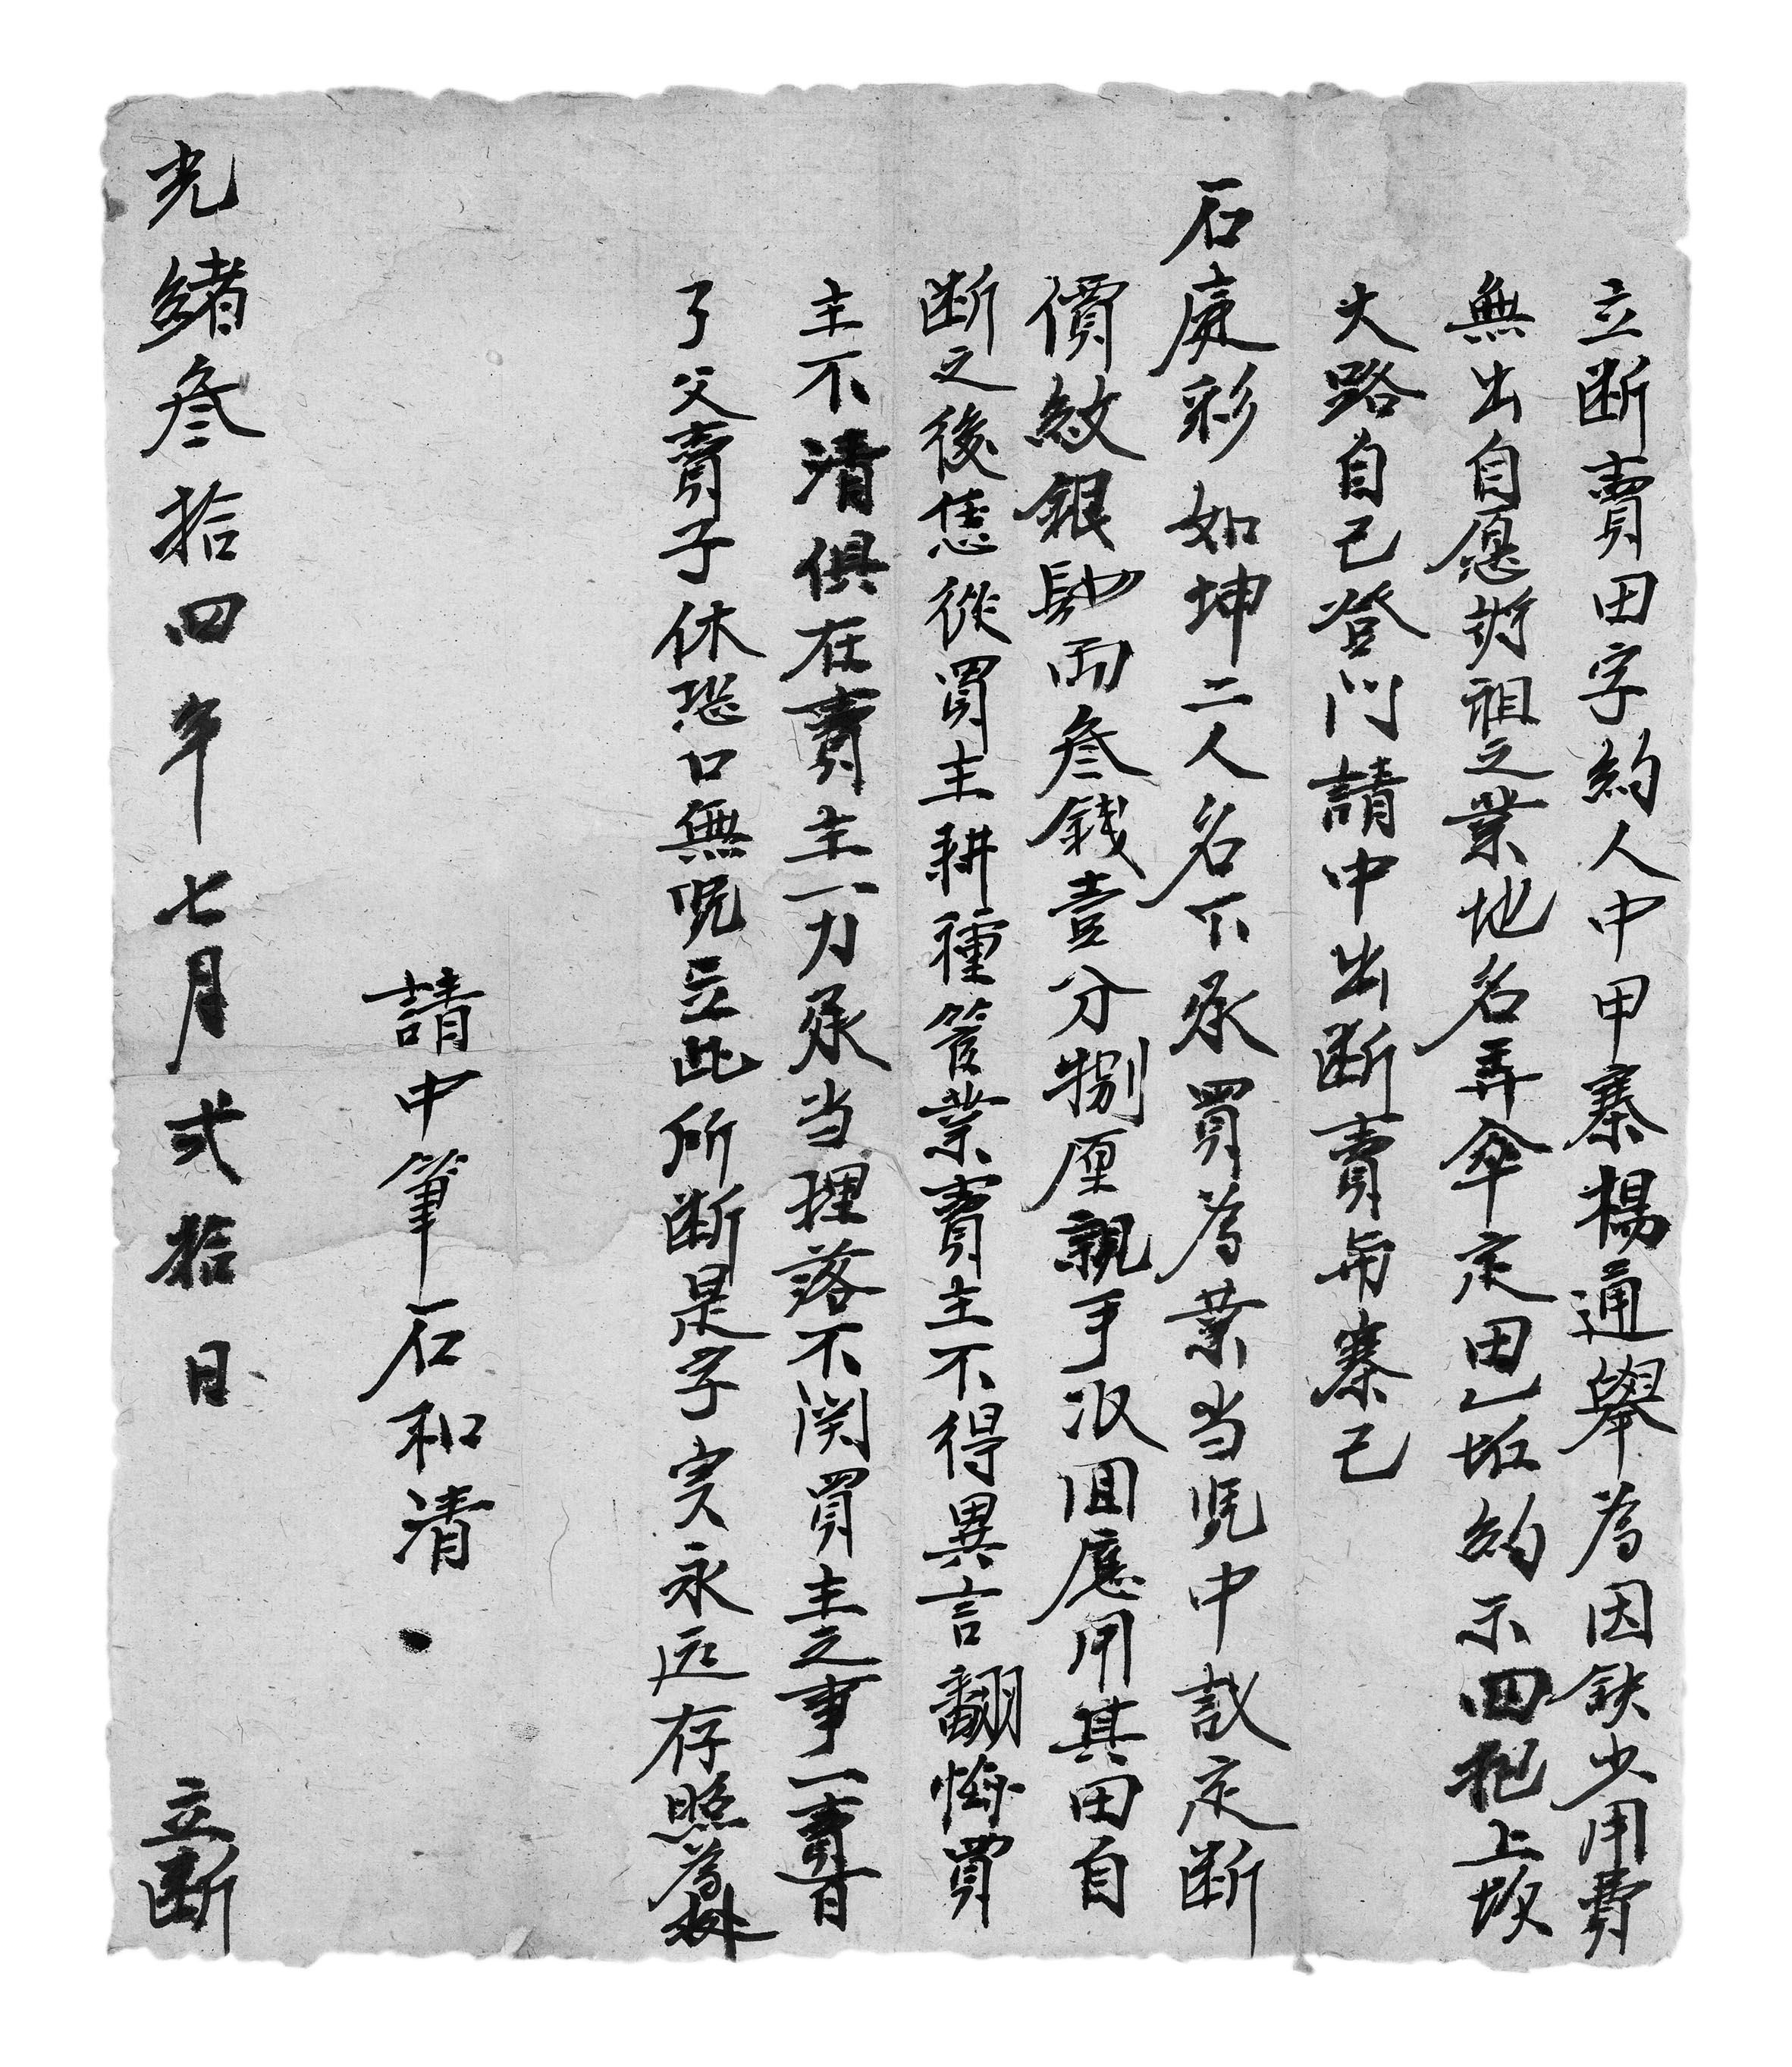 立断賣田字約人中甲寨楊通舉為因缺少用費
無出自愿將祖之業地名弄傘定田乙坵約示四抵上坎
大路自己登门請中出断賣与寨己
石處彩如坤二人名下承買為業当凭中議定断
價紋銀肆両叁錢壹分捌厘親手収囬應用其田自
断之後恁從買主耕種管業賣主不得異言翻悔買
主不清俱在賣主一力承当理落不関買主之事一賣百
了父賣子休恐口無凭立此所断是字実永远存照為拠
請中筆石和清
光緒叁拾四年七月弍拾日 立断